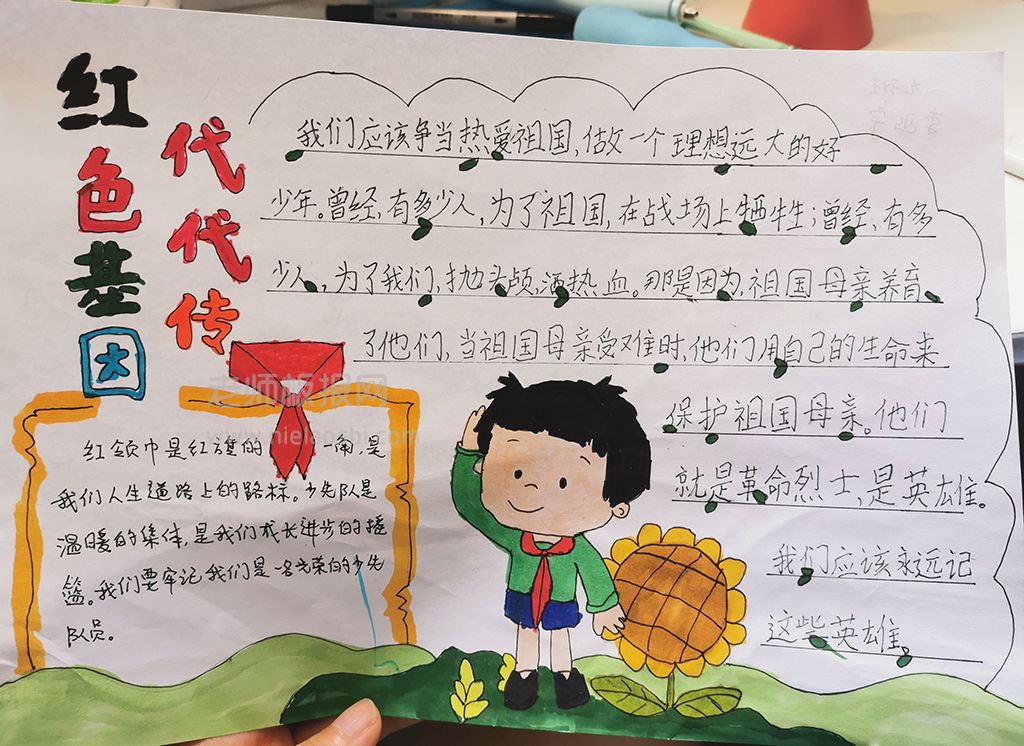 红色基因
代代传
我们应该争当热爱祖国，做一个理想远大的好
少年。曾经，有多少人，为了祖国，在战场上牺牲；曾经，有多
少人，为了我们，抛头颅，洒热血。那是因为，祖国母亲养育
了他们，当祖国母亲受难时，他们用自己的生命来
保护祖国母亲。他们
就是革命烈士，是英雄。
我们应该永远记
这些英雄。
红领巾是红旗的一角，是
我们人生道路上的路标。少先队是
温暖的集体，是我们成长进步的摇
篮。我们要牢记我们是一名光荣的少先
队员。
老师板报网